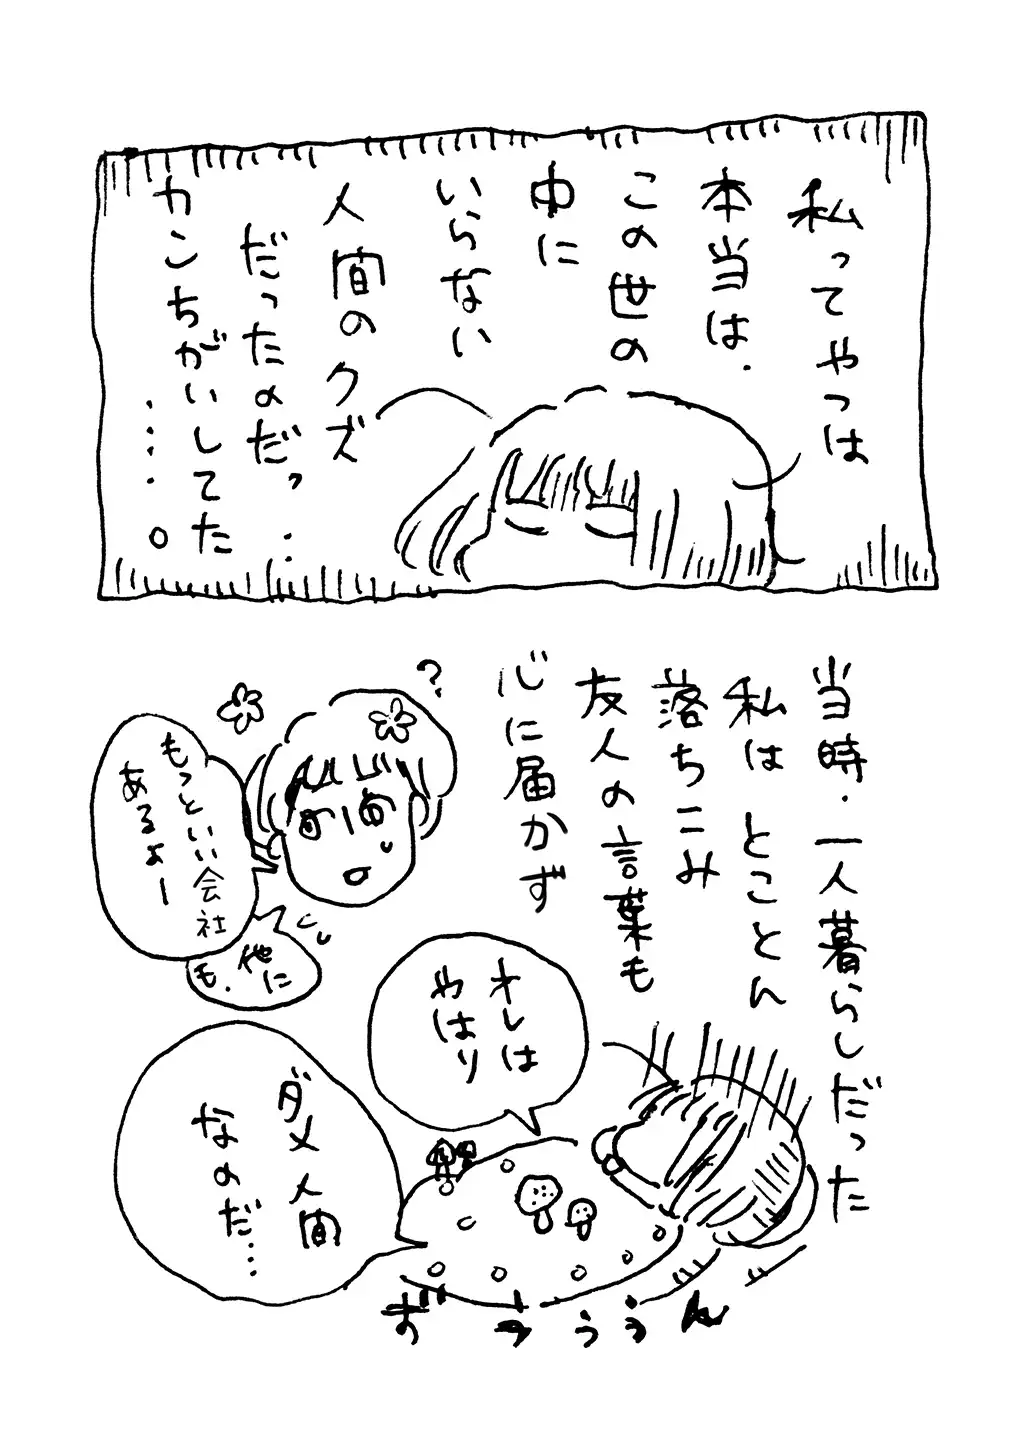 私ってやつは
本当は.
この世の
中に
いらない
人間のクズ
だったのだっ…
カンちがいしてた
……。
当時.一人暮らしだった
私はとことん
落ちこみ
友人の言葉も
心に届かず
?
もっといい会社
あるよー
他に
も.
オレは
やはり
ダメ人間
なのだ…
ずううぅん